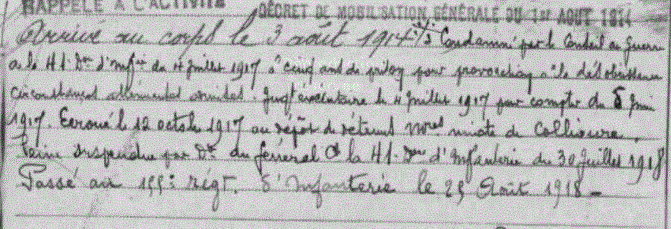 RAPPELÉ À L'ACTIVITÉ DÉCRET DE MOBILISATION GÉNÉRALE DU 1er AOUT 1914
Arrivé au corps le 3 août 1914. Condamné par le Conseil de Guerre
de la 41. Don d'Infie du 4 Juillet 1917 à cinq ans de prison pour provocation à la désobéissance
circonstances atténuantes admises. Jugt exécutoire le 4 Juillet 1917 pour compter du 8 Juin
1917. Ecroué le 12 octobre 1917 au dépôt de détenus de Collioure.
Peine suspendue par Don du Général Ct la 41. Don d'Infanterie du 30 Juillet 1918
Passé au 155e Régt. d'Infanterie le 25 Août 1918 -